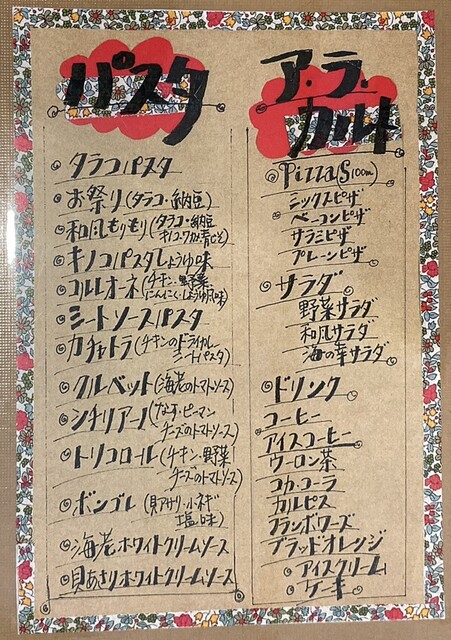 パスタ
タラコパスタ
お祭り(タラコ・納豆)
和風もりもり(タラコ・納豆
キノコ・ワカメ・青じそ)
キノコパスタしょうゆ味
コルレオーネ(チキン・野菜
にんにく・しょうゆ味)
ミートソースパスタ
カチャトラ(チキンのドライカレー
ミートパスタ)
クルベット(海老のトマトソース)
シチリアーノ(なす・ピーマン
チーズのトマトソース)
トリコロール(チキン・野菜
チーズのトマトソース)
ボンゴレ(貝アサリ・小ネギ
塩味)
海老ホワイトクリームソース
貝あさりホワイトクリームソース
ア・ラ・
カルト
Pizza(S
ミックスピザ
ベーコンピザ
サラミピザ
プレーンピザ
サラダ
野菜サラダ
和風サラダ
海の幸サラダ
ドリンク
コーヒー
アイスコーヒー
ウーロン茶
コカ・コーラ
カルピス
フランボワーズ
ブラッドオレンジ
アイスクリーム
ケーキ